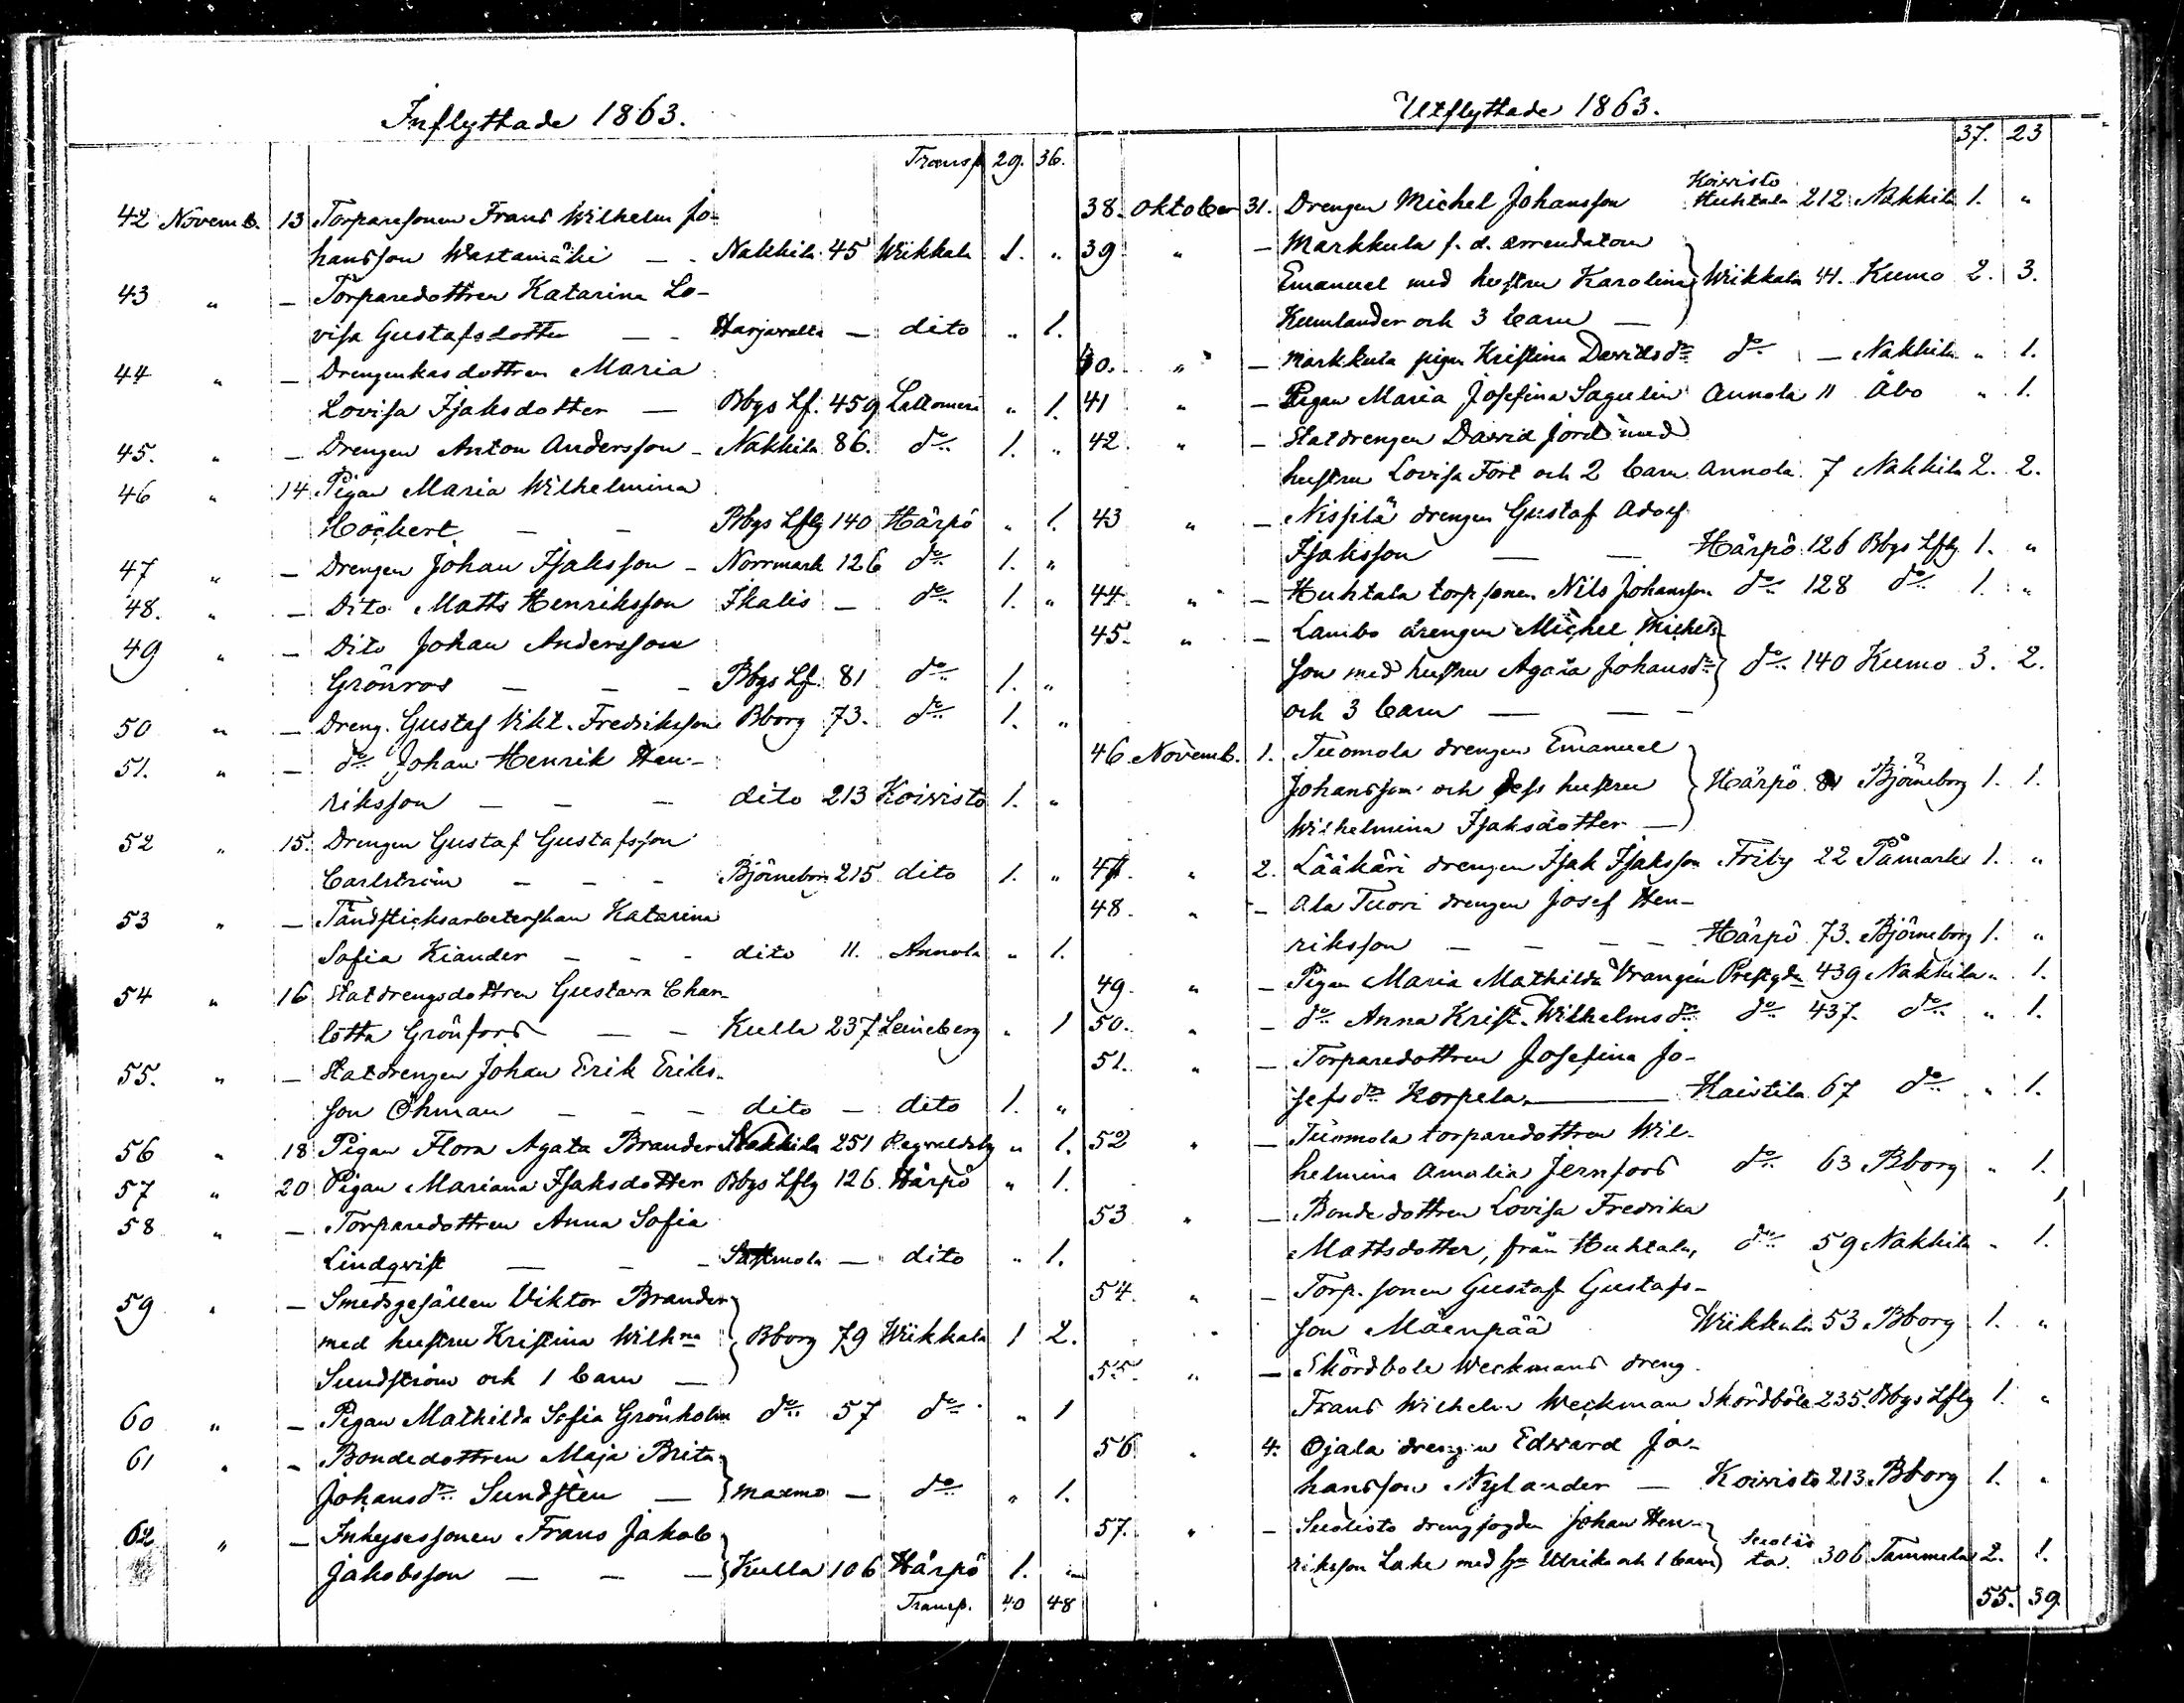 Inflyttade 1863.
Transp. 29. 36.
42 Novemb. 13 Torparesonen Frans Wilhelm Jo-
hansson Wastamäki — - Nakkila 45 Wiikkala 1. "
43 " — Torparedottren Katarina Lo-
visa Gustafsdotter — - Harjavalla — dito " 1.
44 " — Drengenkasdottren Maria
Lovisa Isaksdotter — Bbgs Lf. 459 Lattomeri " 1.
45. " — Drengen Anton Andersson - Nakkila 86. do 1. "
46 " 14 Pigan Maria Wilhelmina
Höckert — - Bbgs Lfg 140 Härpö " 1.
47 " — Drengen Johan Isaksson - Norrmark 126 do 1. "
48. " — Dito Matts Henriksson Ikalis — do 1. "
49 " — Dito Johan Andersson
Grönros — - - Bbgs Lf. 81 do 1. "
50 " — Dreng. Gustaf Vikt. Fredriksson Bborg 73. do 1. "
51. " — do Johan Henrik Hen-
riksson — - — dito 213 Koivisto 1. "
52 " 15. Drengen Gustaf Gustafsson
Carlström - - - Björneborg 215 dito 1. "
53 " — Tändsticksarbeterskan Katarina
Sofia Kiander - - - dito 11. Annola " 1.
54 " 16 Statdrengsdottren Gustava Char-
lotta Grönfors — - Kulla 237 Leineberg " 1
55. " — Statdrengen Johan Erik Eriks-
son Öhman — - - dito — dito 1. "
56 " 18 Pigan Flora Agata Brander Nakkila 251 Ragvaldsby " 1.
57 " 20 Pigan Mariana Isaksdotter Bbgs Lflg 126. Härpö " 1.
58 " — Torparedottren Anna Sofia
Lindqvist — - - Sastmola — dito " 1.
59 " — Smedsgesällen Viktor Brander
med hustru Kristina Wilhna Bborg 79 Wiikkala 1 2.
Sundström och 1 barn —
60 " — Pigan Mathilda Sofia Grönholm do 57 do " 1
61 " — Bondedottren Maja Brita
Johansdr Sundsten — — do " 1.
62 " — Inhysessonen Frans Jakob
Jakobsson — - — Kulla 106 Härpö 1. "
Transp. 40 48
Utflyttade 1863.
37. 23
38. Oktober 31. Drengen Michel Johansson Koivisto Huhtala 212 Nakkila 1. "
39 " — Markkula f. d. arrendatorn
Emanuel med hustru Karolina Wiikkala 41. Kumo 2. 3.
Kumlander och 3 barn —
40. " — Markkula pigan Kristina Davidsdr do — Nakkila " 1.
41 " — Pigan Maria Josefina Sagulin Annola 11 Åbo " 1.
42. " — Statdrengen David Jord med
hustru Lovisa Fört och 2 barn Annola 7 Nakkila 2. 2.
43 " — Nissilä drengen Gustaf Adolf
Isaksson — — Härpö 126 Bbgs Lflg 1. "
44. " — Huhtala torpsonen Nils Johansson do 128 do 1. "
45. " — Lambo drengen Michel Michels-
son med hustru Agata Johansdr do 140 Kumo 3. 2.
och 3 barn — — -
46 Novemb. 1. Tuomola drengen Emanuel
Johansson och dess hustru Härpö 81 Björneborg 1. 1.
Wilhelmina Isaksdotter —
47. " 2. Lääkäri drengen Isak Isaksson Friby 22 Påmark 1. "
48. " — Ala Tuori drengen Josef Hen-
riksson — - - - Härpö 73. Björneborg 1. "
49. " — Pigan Maria Mathilda Vrangén Prestgdn 439 Nakkila " 1.
50. " — do Anna Krist. Wilhelmsdr do 437. do " 1.
51. " — Torparedottren Josefina Jo-
sefsdr Korpela — Haistila 67 do " 1.
52 " — Tuomola torparedottren Wil-
helmina Amalia Jernfors do 63 Bborg " 1.
53 " — Bondedottren Lovisa Fredrika
Mattsdotter, från Huhtala, do 59 Nakkila " 1.
54. " — Torp. sonen Gustaf Gustafs-
son Mäenpää Wiikkala 53 Bborg 1. "
55. " — Skördbole Weckmans dreng
Frans Wilhelm Weckman Skördböle 235. Bbgs Lflg 1. "
56 " 4. Ojala drengen Edvard Jo-
hansson Nylander — Koivisto 213 Bborg 1. "
57. " — Suolisto drengfogden Johan Hen-
riksson Lake med hu Ulrika och 1 barn Suolis-
to. 306 Tammela 2. 1.
55. 39